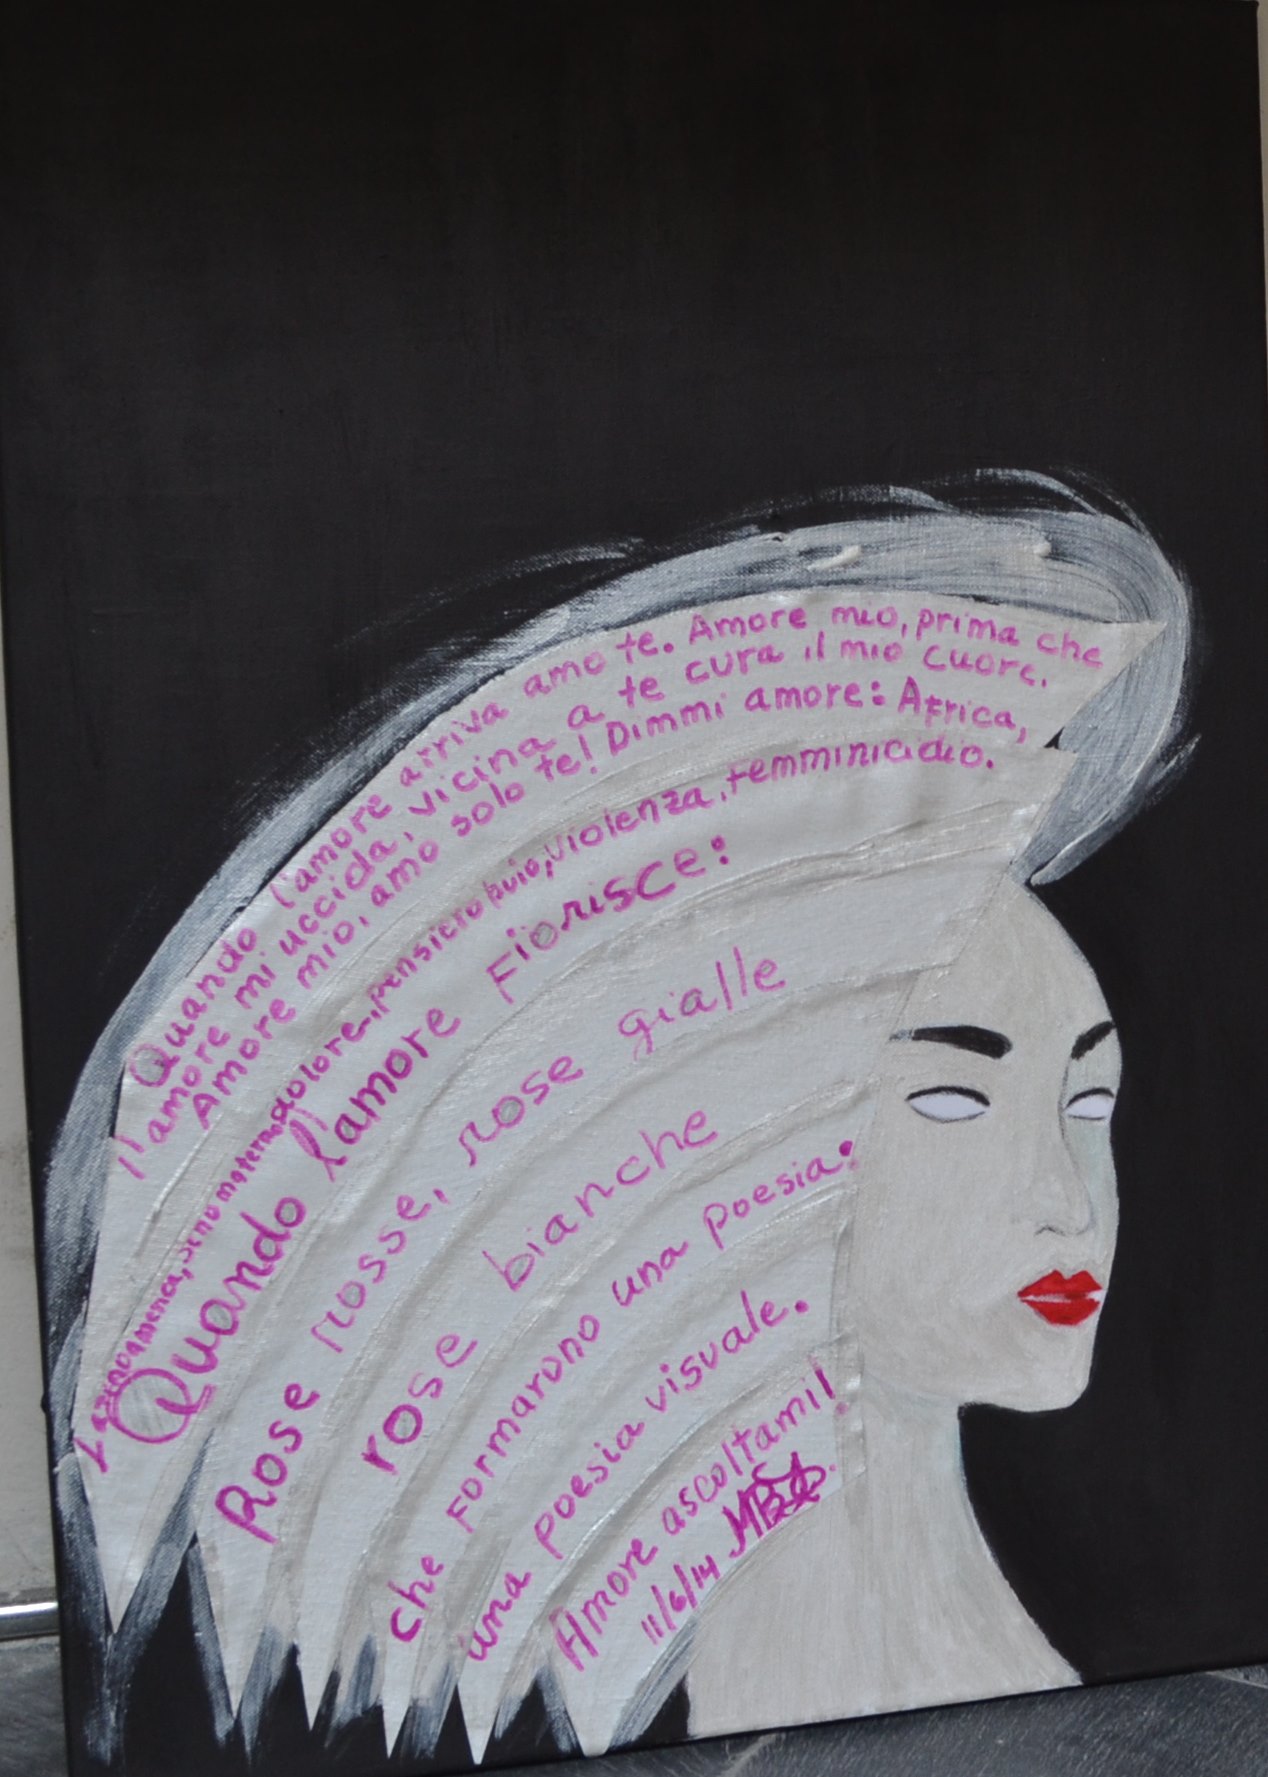 Quando l'amore arriva amo te. Amore mio, prima che
l'amore mi uccida, vicina a te cura il mio cuore.
Amore mio, amo solo te! Dimmi amore: Africa,
seno materno, dolore, pensiero buio, violenza, femminicidio.
Quando l'amore fiorisce:
Rose rosse, rose gialle
rose bianche
che formarono una poesia:
una poesia visuale.
Amore ascoltami!
11/6/14